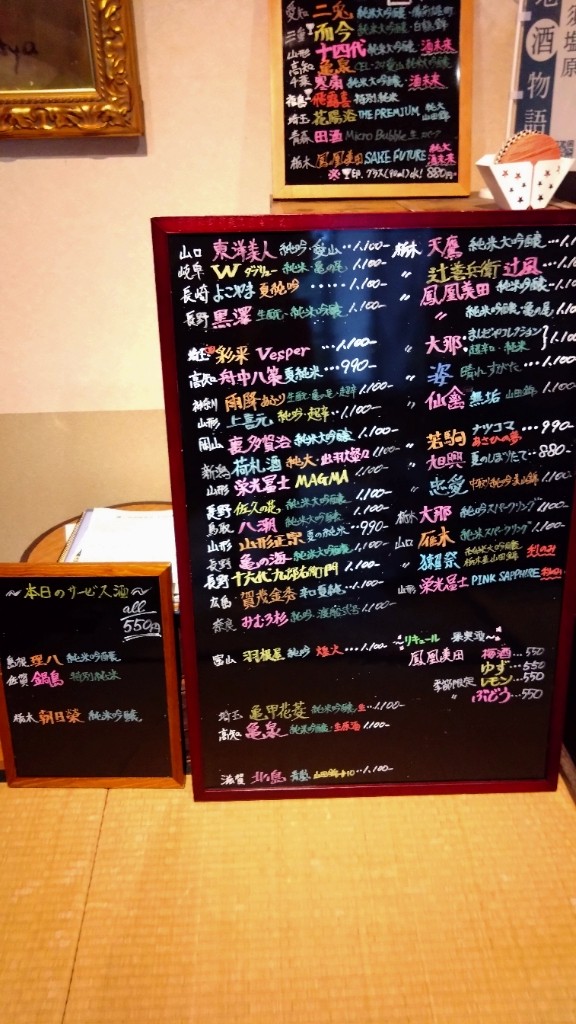 愛知 二兎 純米大吟醸・備前雄町
三重 而今 純米大吟醸・白鶴錦
山形 十四代 純米大吟醸・酒未来
高知 亀泉
千葉 寒菊 純米大吟醸・酒未来
福島 飛露喜 特別純米
埼玉 花陽浴 THE PREMIUM 純大 山田錦
青森 田酒 Micro Bubble 生
栃木 鳳凰美田 SAKE FUTURE 純大 酒未来
※印、グラス(90ml)ok! 880円
地酒物語
塩原
山口 東洋美人 純吟・愛山…1.100-
岐阜 W ダブリュー 純米・亀の尾 1.100-
長崎 よこやま 夏純吟……1.100-
長野 黒澤 生酛・純米吟醸 1.100-
埼玉 彩來 Vesper …1.100-
高知 舟中八策 夏純米…990-
神奈川 雨降 あふり 生酛・亀の尾・超辛 1.100-
山形 上喜元 純吟・超辛…1.100-
岡山 喜多賀治 純米大吟醸 1.100-
新潟 荷札酒 純大・出羽燦々 1.100-
山形 栄光冨士 MAGMA 1.100-
長野 佐久の花 純米大吟醸 1.100-
鳥取 八潮 純米大吟醸 1.100-
山形 山形正宗 夏の純米…990-
長野 亀の海 純米大吟醸 1.100-
長野 十六代九郎右衛門 1.100-
広島 賀茂金秀 1.100-
奈良 みむろ杉 純吟 1.100-
富山 羽根屋 純吟 煌火…1.100-
埼玉 亀甲花菱 純米吟醸 生…1.100-
高知 亀泉 純米吟醸・生原酒 1.100-
滋賀 北島 1.100-
栃木 天鷹 純米大吟醸…1.1
〃 辻善兵衛 辻風
〃 鳳凰美田 純米大吟醸
〃 純米吟醸・亀の尾 1.
〃 大那・ましだやコレクション
・超辛口・純米 } 1.10
〃 姿 晴れすがた…1.100
〃 仙禽 無垢 山田錦 1.100
〃 若駒 ナツコマ あさひの夢…990-
〃 旭興 夏のしぼりたて…880-
〃 忠愛 1.100-
栃木 大那 純吟スパークリング 1100-
山口 雁木 純米スパークリング 1.100-
〃 獺祭
山形 栄光冨士 PINK SAPPHIRE
〜リキュール 果実酒〜
鳳凰美田 梅酒…550
ゆず…550
季節限定 レモン…550
〃 ぶどう…550
〜本日のサービス酒〜
all
550円
島根 理八 純米吟醸
佐賀 鍋島 特別純米
栃木 朝日榮 純米吟醸